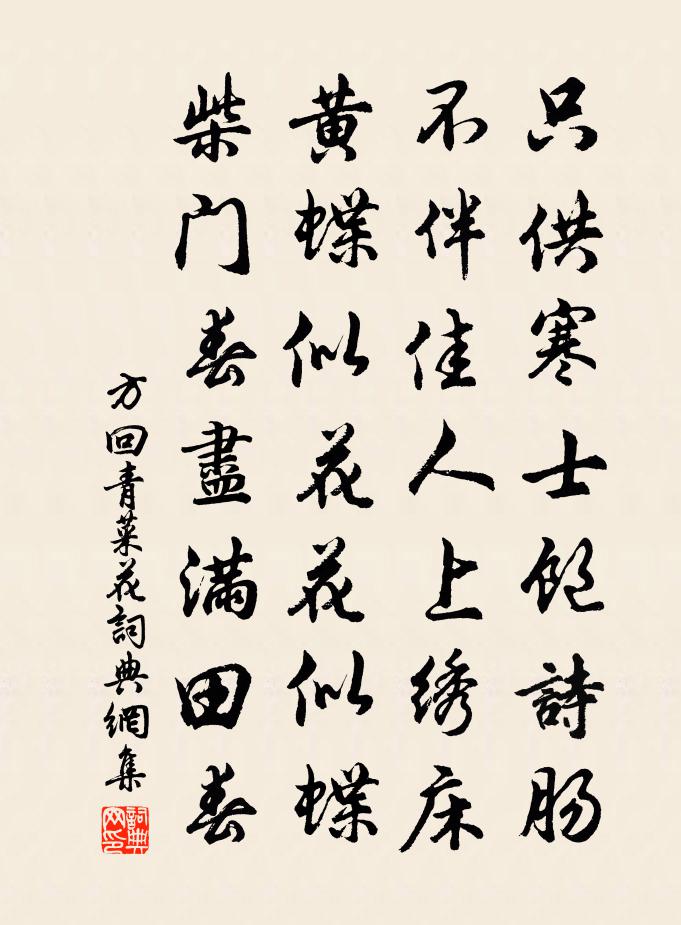 只供寒士飽詩肠
不伴佳人上绣床
黄蝶似花花似蝶
柴门春盡滿田春
方回青菜花詞典網集
詞典网印